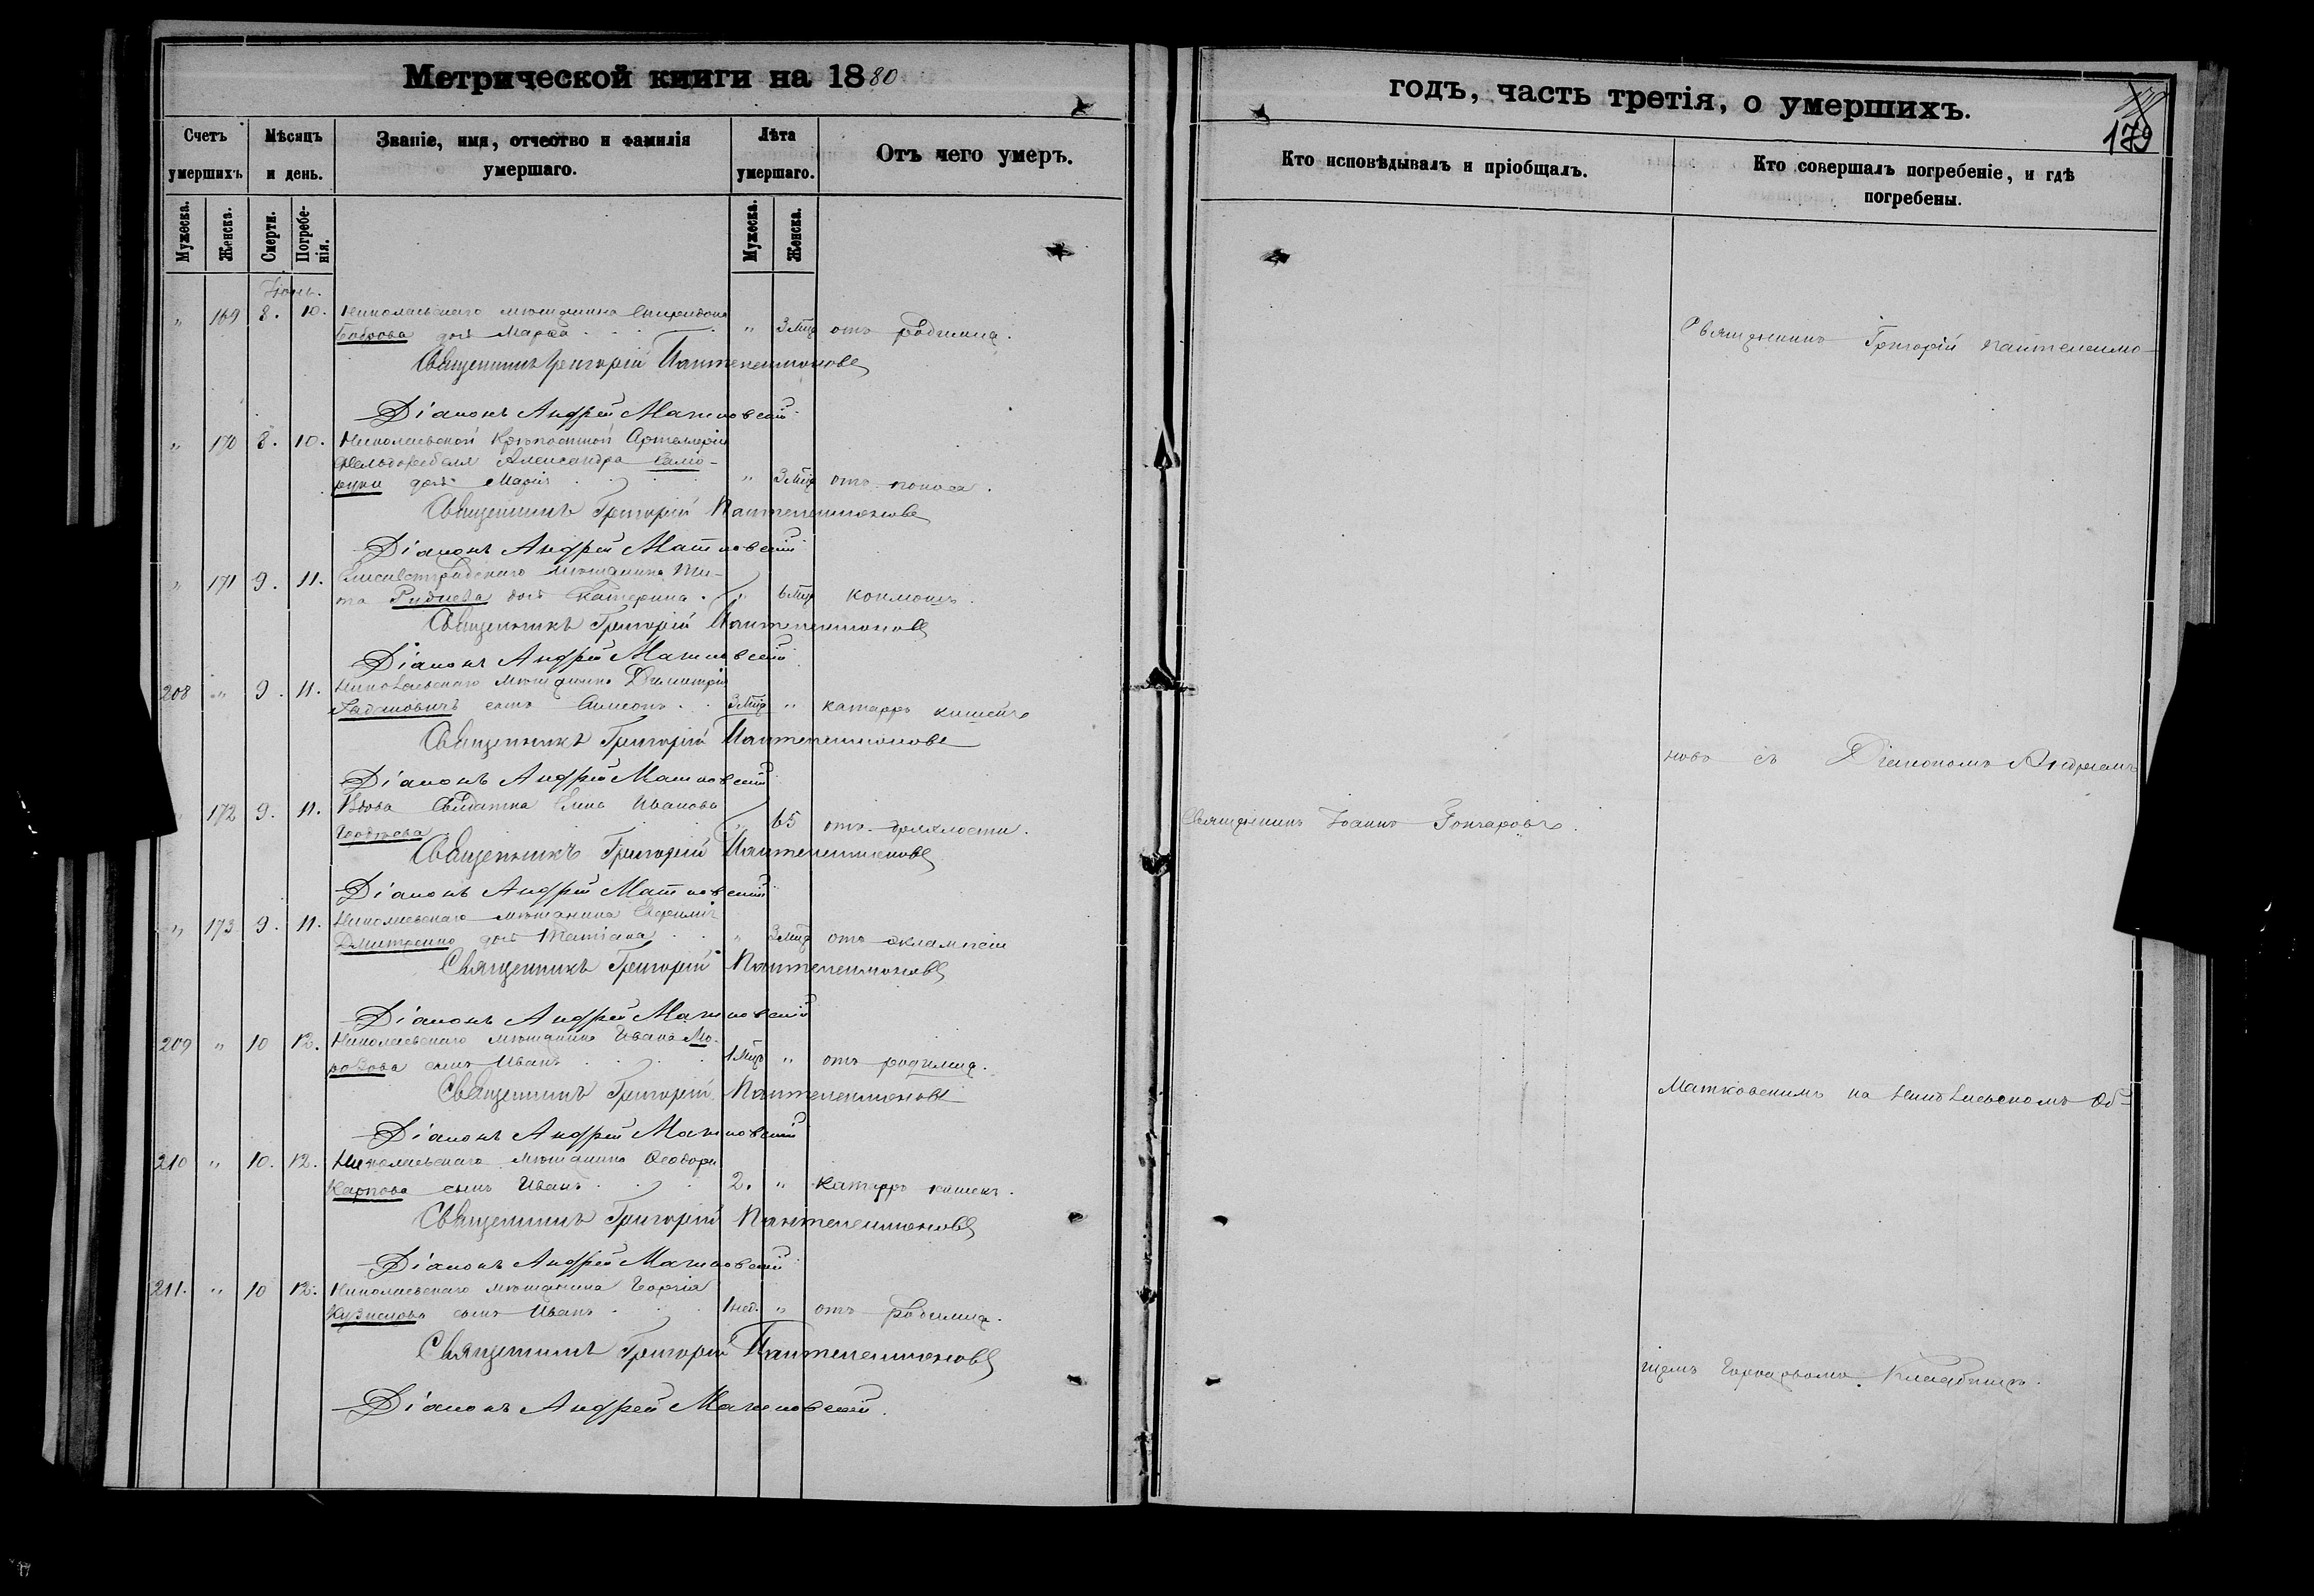 Метрической книги на 1880
Счетъ умершихъ
Мѣсяцъ и день.
Званіе, имя, отчество и фамилія умершаго.
Лѣта умершаго.
Отъ чего умеръ.
Мужеска.
Женска.
Смерти.
Погребенія.
Мужеска.
Женска.
Іюнь.
" 169 8. 10. Николаевскаго мѣщанина Спиридона
Боброва дочь Марѳа " 3 мѣс отъ родимца.
Священникъ Григорій Пантелеимоновъ
Діаконъ Андрей Матковскій
" 170 8. 10. Николаевской Крѣпостной Артиллеріи
фельдфебеля Александра
дочь Марія " 3 мѣс отъ поноса.
Священникъ Григорій Пантелеимоновъ
Діаконъ Андрей Матковскій
" 171 9. 11. Елисаветградскаго мѣщанина Ти-
та Руднева дочь Екатерина " 6 мѣс коклюшъ.
Священникъ Григорій Пантелеимоновъ
Діаконъ Андрей Матковскій
208 " 9. 11. Николаевскаго мѣщанина Димитрія
сынъ Симеонъ 3 мѣс " катарръ кишекъ
Священникъ Григорій Пантелеимоновъ
Діаконъ Андрей Матковскій
172 9. 11. Вдова Солдатка Елена Иванова
" 65 отъ дряхлости.
Священникъ Григорій Пантелеимоновъ
Діаконъ Андрей Матковскій
" 173 9. 11. Николаевскаго мѣщанина Евфимія
Дмитренко дочь Татіана " 3 мѣс отъ эклампсіи
Священникъ Григорій Пантелеимоновъ
Діаконъ Андрей Матковскій
209 " 10 12. Николаевскаго мѣщанина Ивана Мо-
розова сынъ Иванъ 1 мѣс " отъ родимца.
Священникъ Григорій Пантелеимоновъ
Діаконъ Андрей Матковскій
210 " 10. 12. Николаевскаго мѣщанина Ѳеодора
Карпова сынъ Иванъ 2. " Катарръ кишекъ.
Священникъ Григорій Пантелеимоновъ
Діаконъ Андрей Матковскій
211. " 10 12. Николаевскаго мѣщанина Георгія
Кузнецова сынъ Иванъ 1 нед. " отъ родимца.
Священникъ Григорій Пантелеимоновъ
Діаконъ Андрей Матковскій.
годъ, часть третія, о умершихъ.
179
Кто исповѣдывалъ и пріобщалъ.
Кто совершалъ погребеніе, и гдѣ погребены.
Священникъ Григорій Пантелеимо-
новъ съ Діакономъ Андреемъ
Священникъ Іоаннъ Гончаровъ.
Матковскимъ на Николаевскомъ Об-
щемъ Городскомъ Кладбищѣ.